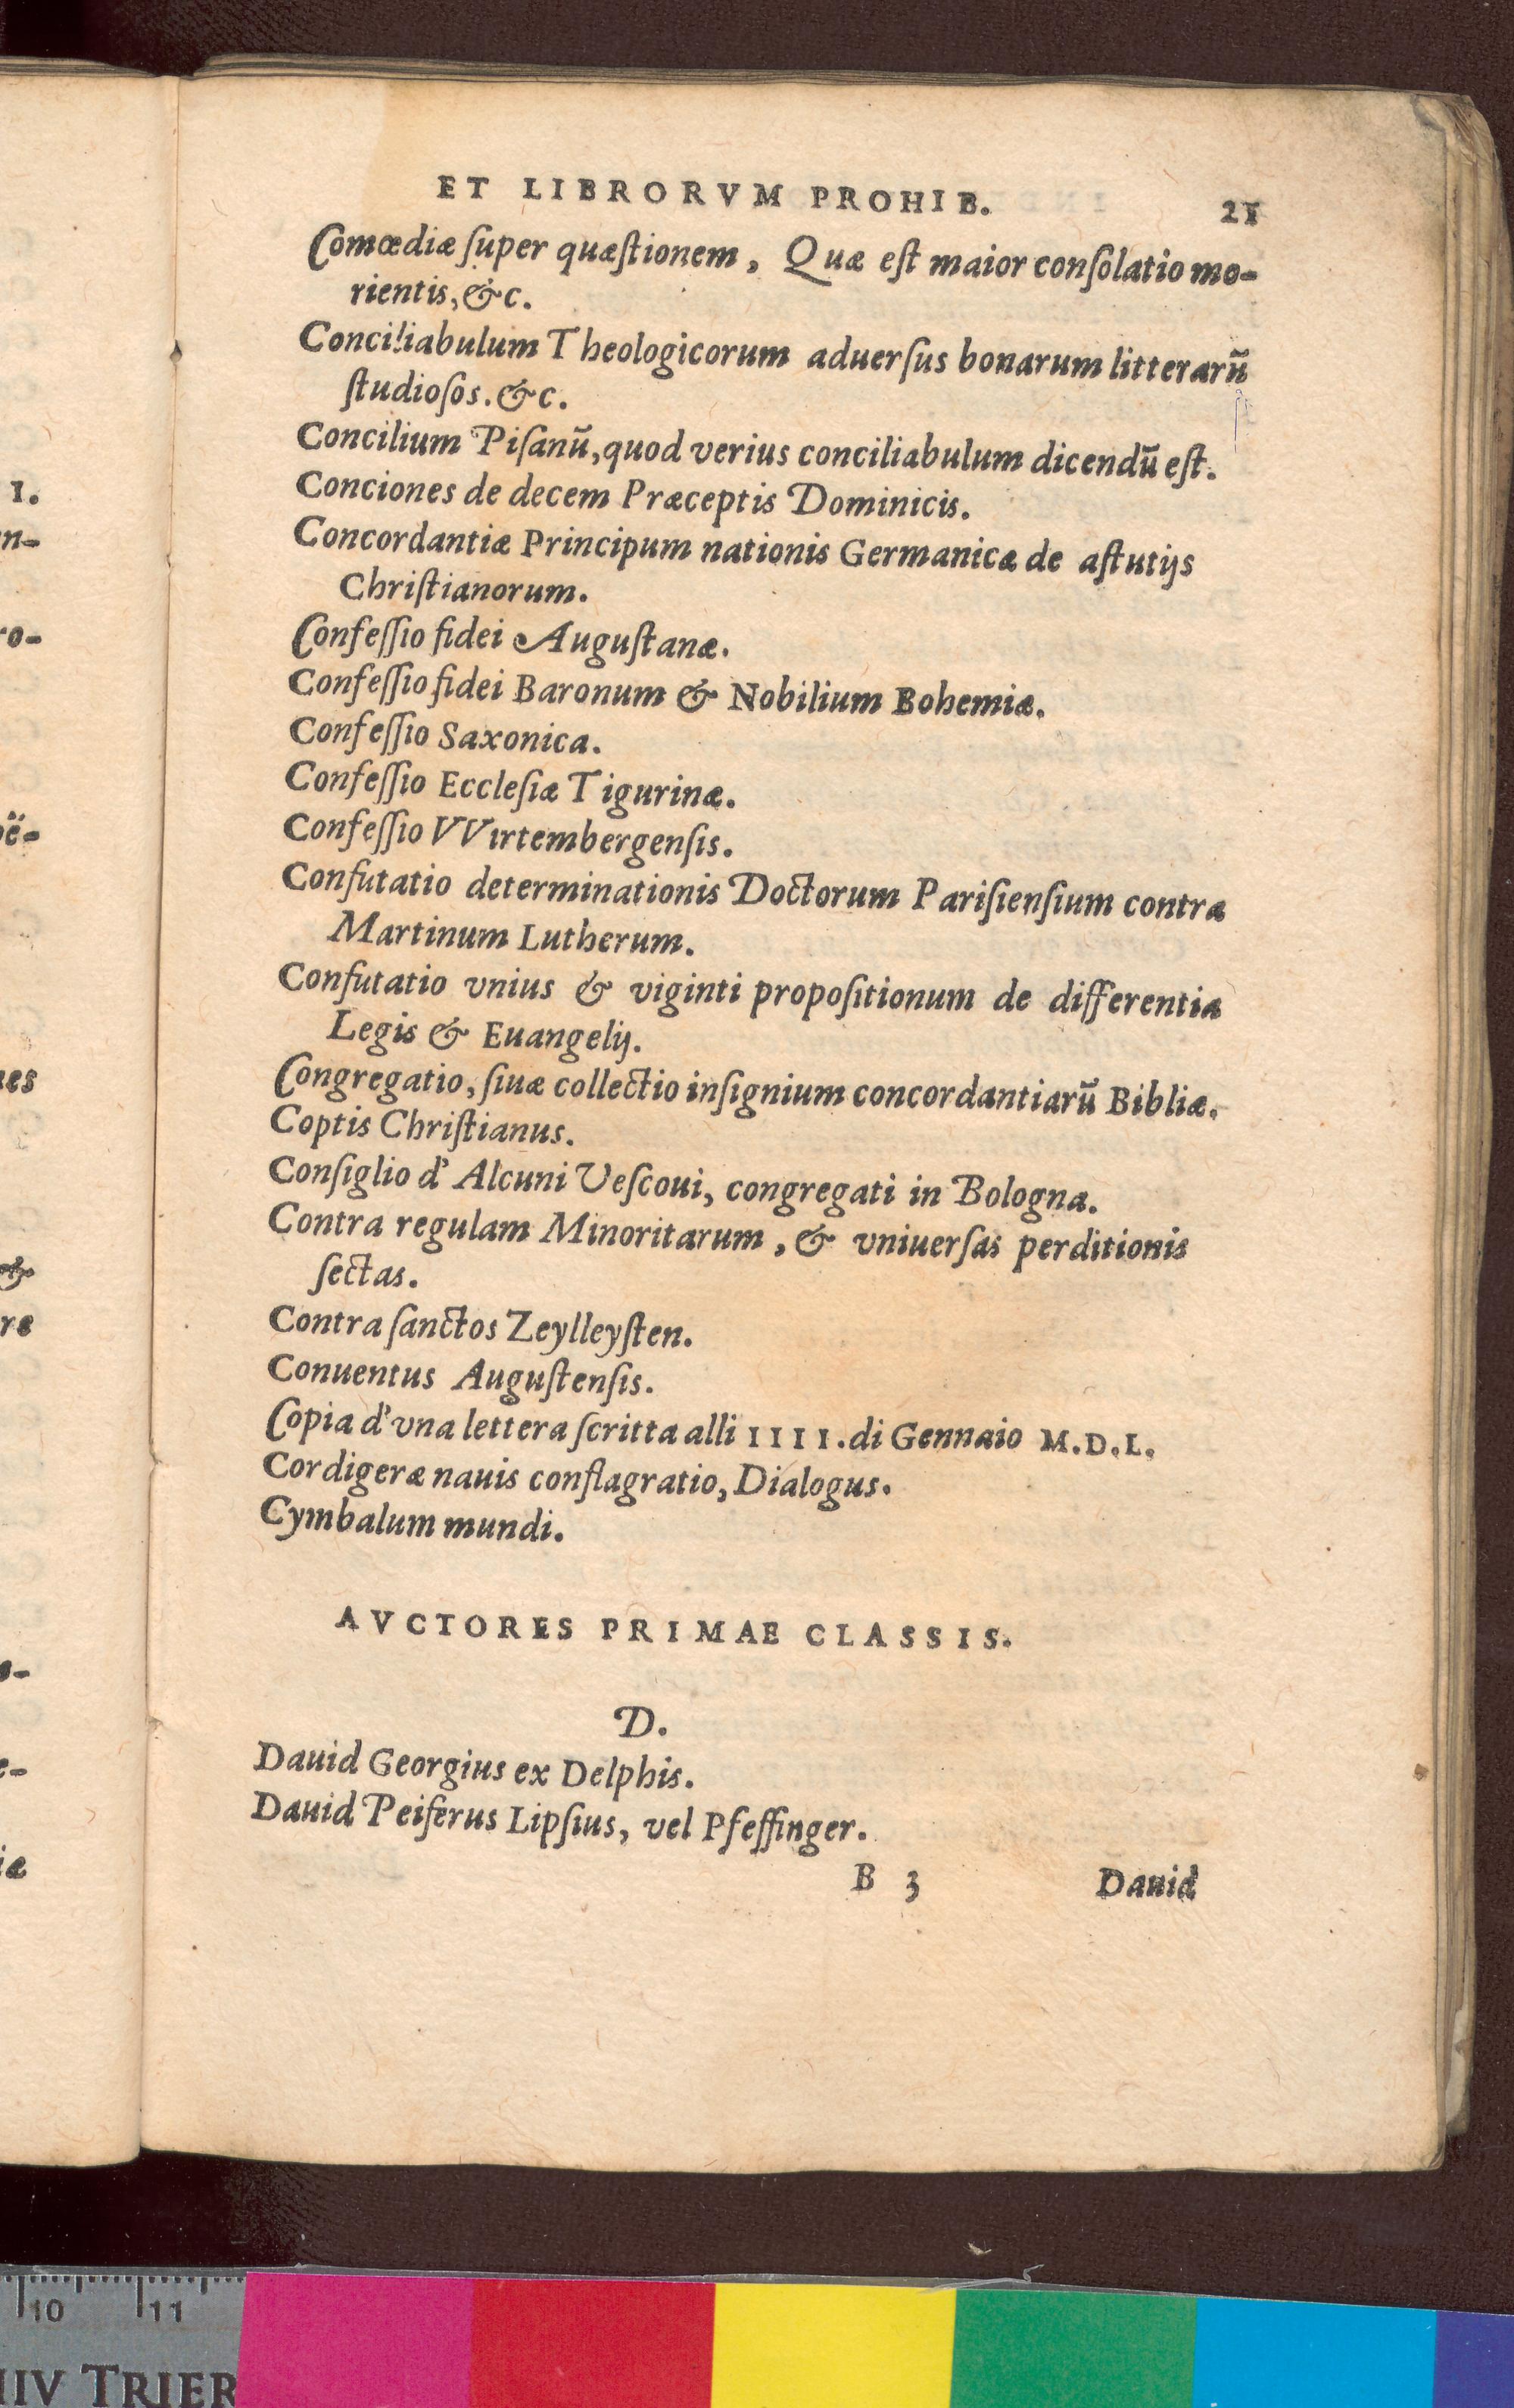 ET LIBRORVM PROHIB. 21
Comœdiæ ſuper quæſtionem, Quæ eſt maior conſolatio mo-
rientis, &c.
Conciliabulum Theologicorum aduerſus bonarum litterarũ
ſtudioſos. &c.
Concilium Piſanũ, quod verius conciliabulum dicendũ eſt.
Conciones de decem Præceptis Dominicis.
Concordantiæ Principum nationis Germanicæ de aſtutijs
Chriſtianorum.
Confeſſio fidei Auguſtanæ.
Confeſſio fidei Baronum & Nobilium Bohemiæ.
Confeſſio Saxonica.
Confeſſio Eccleſiæ Tigurinæ.
Confeſſio VVirtembergenſis.
Confutatio determinationis Doctorum Pariſienſium contra
Martinum Lutherum.
Confutatio vnius & viginti propoſitionum de differentia
Legis & Euangelij.
Congregatio, ſiuæ collectio inſignium concordantiarũ Bibliæ.
Coptis Chriſtianus.
Conſiglio d' Alcuni Veſcoui, congregati in Bologna.
Contra regulam Minoritarum, & vniuerſas perditionis
ſectas.
Contra ſanctos Zeylleyſten.
Conuentus Auguſtenſis.
Copia d'vna lettera ſcritta alli IIII. di Gennaio M.D.L.
Cordigeræ nauis conflagratio, Dialogus.
Cymbalum mundi.
AVCTORES PRIMAE CLASSIS.
D.
Dauid Georgius ex Delphis.
Dauid Peiferus Lipſius, vel Pfeffinger.
B 3 Dauid
10 11
TRIER